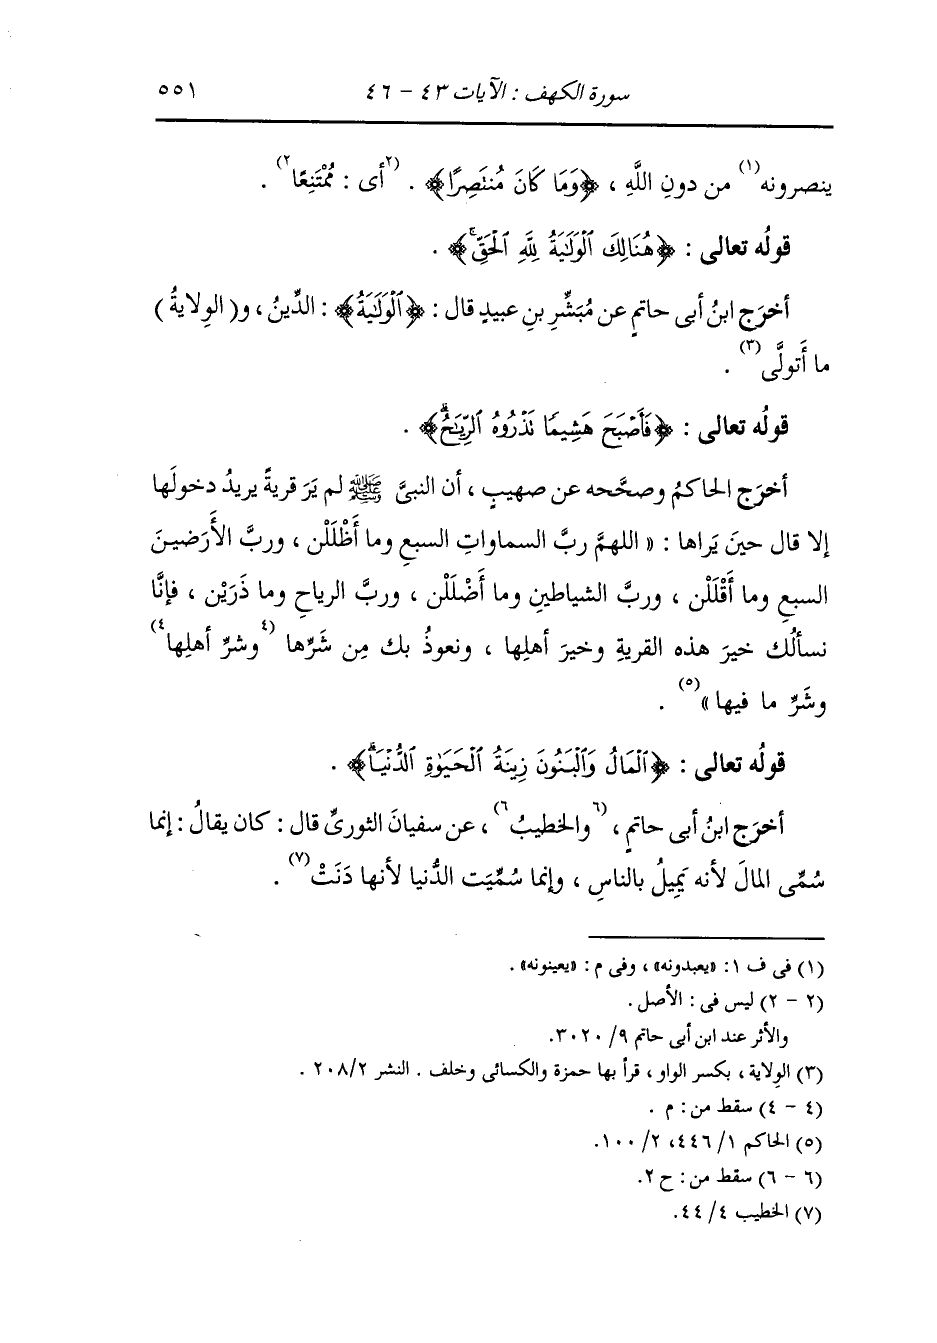 سورة الكهف : الآيات ٤٣ - ٤٦ ٥٥١
ينصرونه(١) من دونِ اللَّهِ ، ﴿وَمَا كَانَ مُنتَصِرًا﴾ . (٢أى : مُمْتَنِعًا٢) .
قولُه تعالى : ﴿هُنَالِكَ ٱلْوَلَٰيَةُ لِلَّهِ ٱلْحَقِّۚ﴾ .
أخرَج ابنُ أبى حاتمٍ عن مُبَشِّرِ بنِ عبيدٍ قال : ﴿ٱلْوَلَٰيَةُ﴾ : الدِّينُ ، و( الوِلايةُ )
ما أَتولَّى(٣) .
قولُه تعالى : ﴿فَأَصْبَحَ هَشِيمًا تَذْرُوهُ ٱلرِّيَٰحُۗ﴾ .
أخرَج الحاكمُ وصحَّحه عن صهيبٍ ، أن النبىَّ ﷺ لم يَرَ قريةً يريدُ دخولَها
إلا قال حينَ يَراها : « اللهمَّ ربَّ السماواتِ السبعِ وما أَظْلَلْن ، وربَّ الأَرَضينَ
السبعِ وما أَقْلَلْن ، وربَّ الشياطينِ وما أَضْلَلْن ، وربَّ الرياحِ وما ذَرَيْن ، فإنَّا
نسألُك خيرَ هذه القريةِ وخيرَ أهلِها ، ونعوذُ بك مِن شَرِّها (٤وشرِّ أهلِها٤)
وشَرِّ ما فيها »(٥) .
قولُه تعالى : ﴿ٱلْمَالُ وَٱلْبَنُونَ زِينَةُ ٱلْحَيَوٰةِ ٱلدُّنْيَاۖ﴾ .
أخرَج ابنُ أبى حاتمٍ ، (٦والخطيبُ٦) ، عن سفيانَ الثورىِّ قال : كان يقالُ : إنما
سُمِّى المالَ لأنه يَمِيلُ بالناسِ ، وإنما سُمِّيَت الدُّنيا لأنها دَنَتْ(٧) .
(١) فى ف ١: «يعبدونه» ، وفى م : «يعينونه» .
(٢ - ٢) ليس فى : الأصل .
والأثر عند ابن أبى حاتم ٩/ ٣٠٢٠.
(٣) الوِلاية ، بكسر الواو ، قرأ بها حمزة والكسائى وخلف . النشر ٢٠٨/٢ .
(٤ - ٤) سقط من : م .
(٥) الحاكم ١/ ٤٤٦، ٢/ ١٠٠.
(٦ - ٦) سقط من : ح ٢.
(٧) الخطيب ٤/ ٤٤.